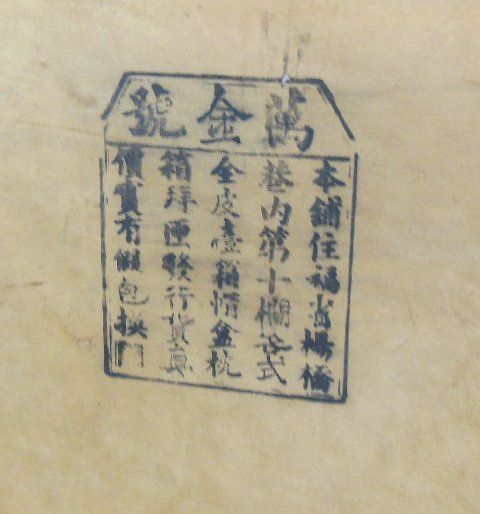 萬金號
本鋪住福省楊橋
巷內第十間各式
全皮臺箱惰盒枕
箱拜匣發行貨真
價實有假包換